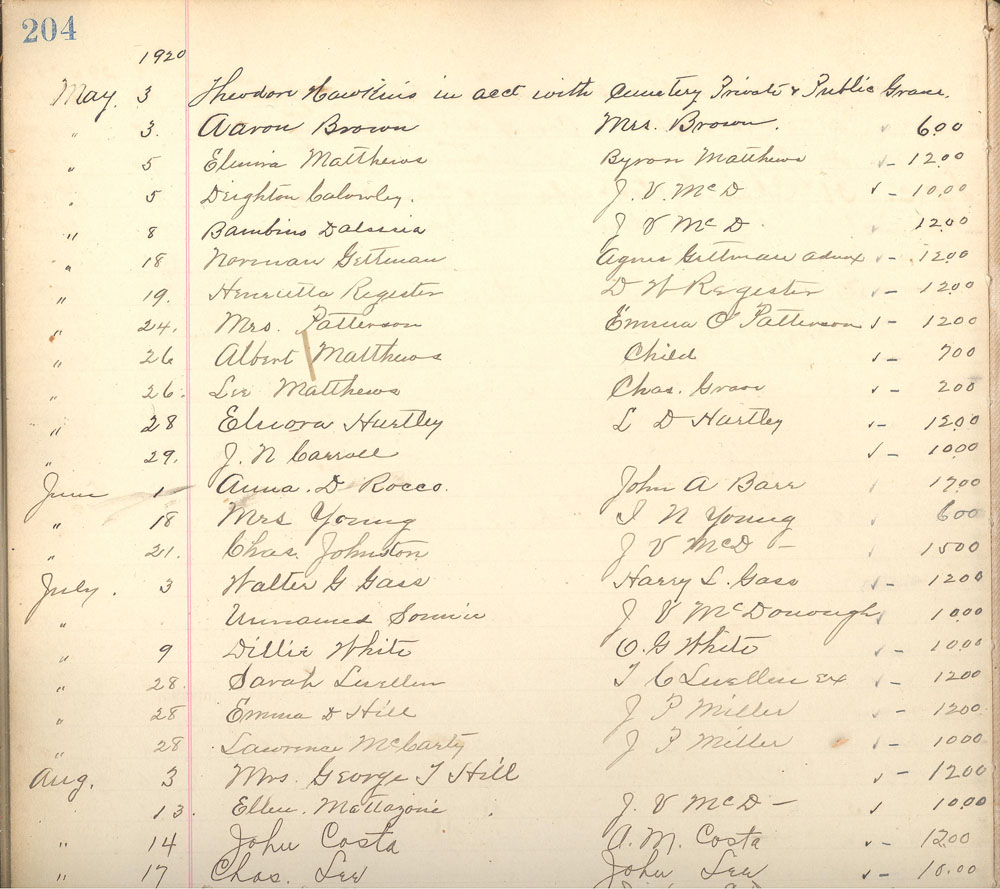 204
1920
May. 3 Theodore Hawkins in acct with Cemetery Private & Public Graves.
" 3. Aaron Brown Mrs. Brown. ✓ 6.00
" 5 Elmira Matthews Byron Matthews ✓ - 12.00
" 5 Deighton J. V. McD ✓ - 10.00
" 8 Bambino J V McD. ✓ 12.00
" 18 Norman Gettman Agnes Gittman admx ✓ - 12.00
" 19. Henrietta Register D W Register ✓ - 12.00
" 24. Mrs. Patterson Emma O Patterson ✓ - 12.00
" 26 Albert Matthews Child ✓ - 7.00
" 26. Lee Matthews Chas. Grave ✓ - 2.00
" 28 Elnora Hurtley L D Hartley ✓ - 12.00
" 29. J. N Carroll ✓ - 10.00
June 1 Anna. D Rocco. John A Barr ✓ 17.00
" 18 Mrs Young I N Young ✓ 6.00
" 21. Chas. Johnston J V McD - ✓ 15.00
July. 3 Walter G Gass Harry L. Gass ✓ - 12.00
" Unnamed J V McDonough ✓ 10.00
" 9 Dillie White O. G White ✓ - 10.00
" 28. Sarah Luellen T C Luellen Ex ✓ - 12.00
" 28 Emma D Hill J P Miller ✓ - 12.00
" 28 Lawrence McCarty J P Miller ✓ - 10.00
Aug. 3 Mrs. George T Hill ✓ - 12.00
13. Ellen. J. V McD - ✓ 10.00
" 14 John Costa A. M. Costa ✓ - 12.00
" 17 Chas. Lee John Lee ✓ - 10.00